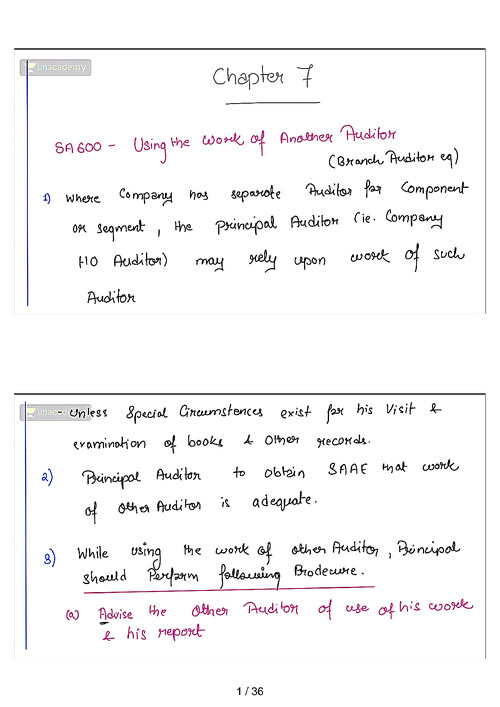 unacademy
Chapter 7
SA 600 - Using the work of Another Auditor
(Branch Auditor eg)
1) Where Company has separate Auditor for Component
or segment, the principal Auditor (ie. Company
HO Auditor) may rely upon work of such
Auditor
unacademy
- Unless Special Circumstences exist for his Visit &
examination of books & Other records.
2) Principal Auditor to obtain SAAE that work
of other Auditor is adequate.
3) While using the work of other Auditor, Principal
should Perform following Prodecure.
(a) Advise the other Auditor of use of his work
& his report
1 / 36